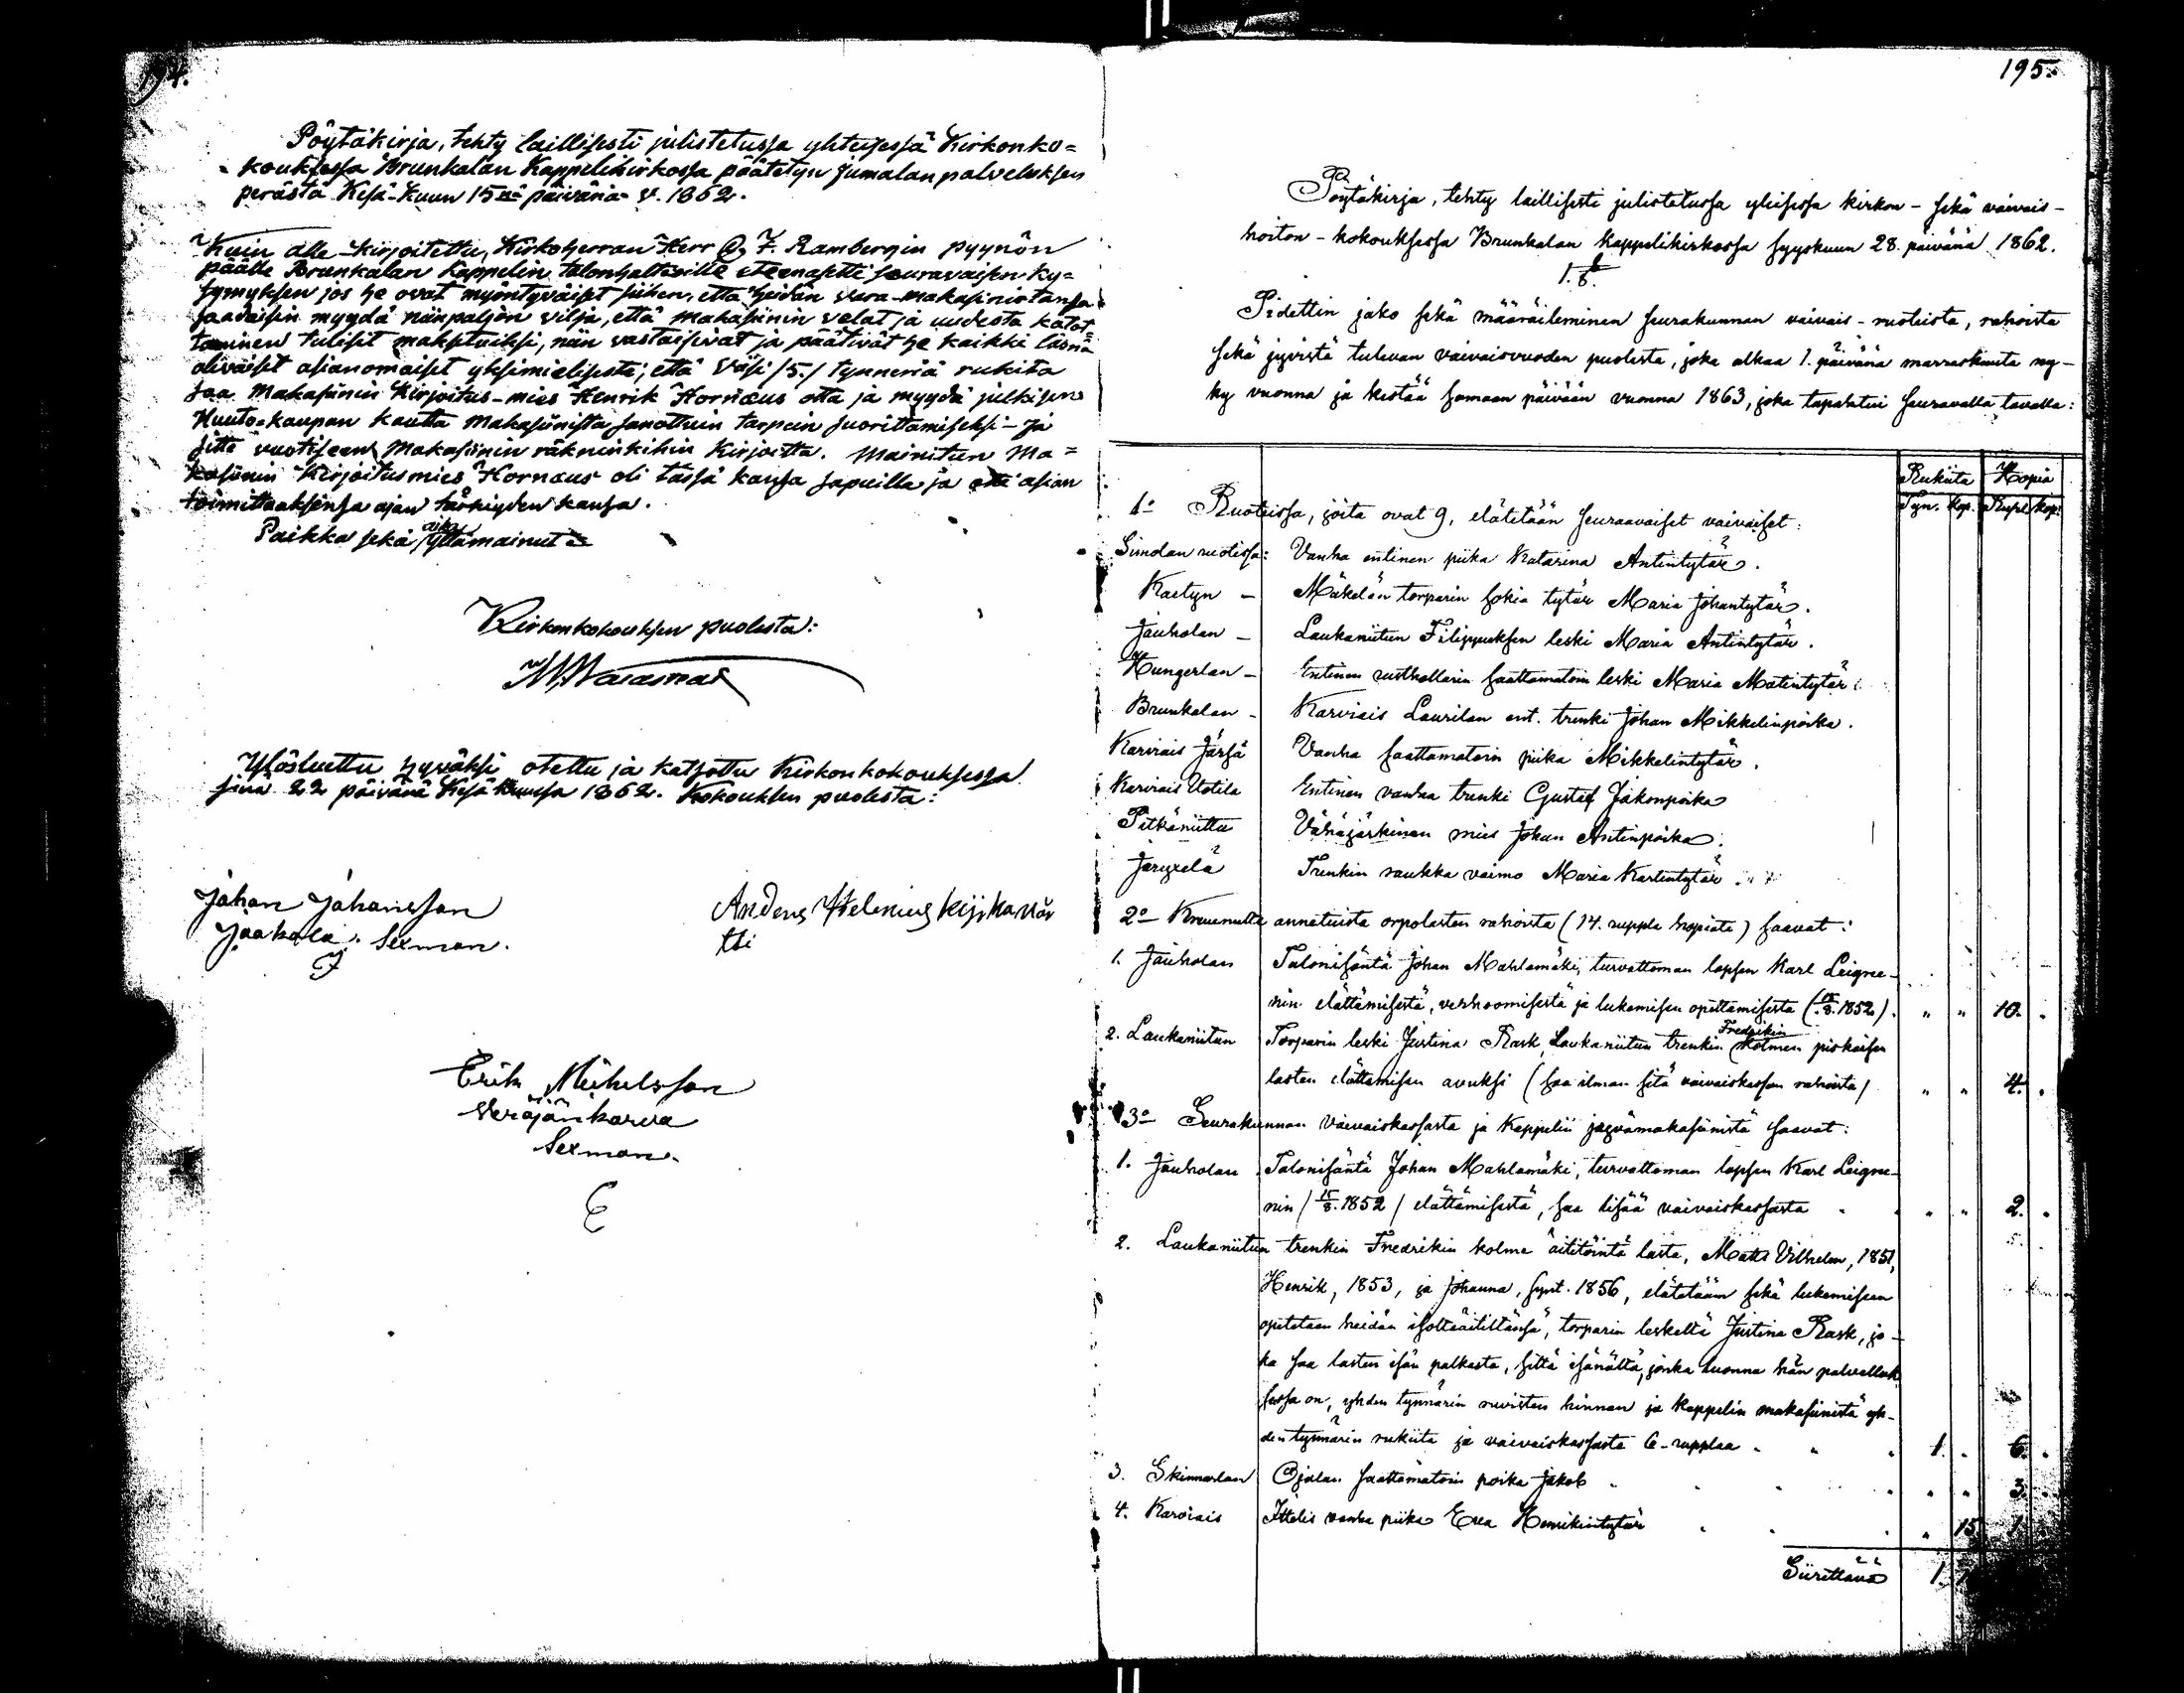 194.
Pöytäkirja, tehty laillisesti julistetussa yhteisessä Kirkonko=
kouksessa Brunkalan Kappelikirkossa päätetyn jumalan palveluksen
perästä Kesä-kuun 15nä päivänä v. 1862.
Kuin alle-kirjoitettu, Kirkoherran Herr G F. Rambergin pyynön
päälle Brunkalan Kappelin talonhaltioille eteenasetti seuravaisen ky=
symyksen jos he ovat myöntyväiset siihen, että heidän vara-makasinistansa
saataisiin myydä niinpaljon vilja, että makasiinin velat ja uudesta katot
taminen tulisit maksetuiksi, niin vastaisivat ja päätivät he kaikki läsnä
olivaiset asianomaiset yksimielisesti; että Viisi /5./ tynneriä rukiita
saa Makasiinin Kirjoitus-mies Henrik Hornæus otta ja myydä julkisen
Huuto-kaupan kautta Makasiinista sanottuin tarpein suorittamiseksi - ja
sitte vuotiseen Makasiinin räkninkihin Kirjoitta. Mainitun Ma=
kasiinin Kirjoitusmies Hornæus oli tässä kansa sapuilla ja otti asian
toimittaaksensa ajan kansa.
Paikka sekä aika yllämainut
Kirkonkokouksen puolesta:
Ylösluettu hyväksi otettu ja katsottu Kirkonkokouksessa
sinä 22 päivänä Kesäkuussa 1862. Kokouksen puolesta:
Johan Johansson
Jaakola. Sexman.
J
Anders Helenius Kijskanör
tti
Erik Michelsson
Veräjänkorva
Sexman.
E
195.
Pöytäkirja, tehty laillisesti julistetussa yleisessä kirkon- sekä vaivais-
hoiton-kokouksessa Brunkalan kappelikirkossa syyskuun 28. päivänä 1862.
1. §.
Pidettiin jako sekä määräileminen seurakunnan vaivais-ruoteista, rahoista
sekä jyvistä tulevan vaivaisvuoden puolesta, joka alkaa 1. päivänä marraskuuta ny-
ky vuonna ja kestää samaan päivään vuonna 1863, joka tapahtui seuravalla tavalla:
Rukiita Hopia
Tyn. Kap. Rupl. kop.
1o Ruoteissa, joita ovat 9, elätetään seuraavaiset vaivaiset:
Simolan ruotissa: Vanha entinen piika Katarina Antintytär.
Kaetyn - Mäkelän torparin sokia tytär Maria Johantytär.
Jauholan - Laukaniitun Filippuksen leski Maria Antintytär.
Hungerlan - Entinen rusthollarin saattamatoin leski Maria Matintytär.
Brunkalan - Karviais Laurilan ent. trenki Johan Mikkelinpoika.
Karviais Järsä Vanha saattamatoin piika Mikkelintytär.
Karviais Uotila Entinen vanha trenki Gustaf Jakonpoika
Pitkäniittu Vähäjärkinen mies Johan Antinpoika.
Jaryxelä Trenkin raukka vaimo Maria Kartintytär.
2o Kruunulta annetuista orpolasten rahoista (14. rupla hopiata) saavat:
1. Jauholan Talonisäntä Johan Mahlamäki, turvattoman lapsen Karl Leigne-
nin elättämisestä, verhoomisesta ja lukemisen opettamisesta (15/8. 1852). " " 10. .
2. Laukaniitun Torparin leski Justina Rask, Laukaniitun trenkin Fredrikin kolmen piskuisen
lasten elättämisen avuksi (saa ilman sitä vaivaiskassan rahoista) " " 4. .
3o Seurakunnan vaivaiskassasta ja kappelin jyvämakasiinista saavat:
1. Jauholan Talonisäntä Johan Mahlamäki, turvattoman lapsen Karl Leigne-
nin /15/8. 1852/ elättämisestä, saa lisää vaivaiskassasta " " 2. .
2. Laukaniitun trenkin Fredrikin kolme äititöintä lasta, Matts Vilhelm, 1851,
Henrik, 1853, ja Johanna, synt. 1856, elätetään sekä lukemiseen
opetetaan heidän isoltaäitiltänsä, torparin leskeltä Justina Rask, jo-
ka saa lasten isän palkasta, siltä isänältä, jonka luonna hän palvelluk-
sessa on, yhden tynnärin ruisten hinnan ja kappelin makasiinista yh-
den tynnärin rukiita ja vaivaiskassasta 6-ruplaa 1. . 6. .
3. Skinnarlan Ojalan saattamatoin poika Jakob " " 3. .
4. Karviais Ittelis vanha piika Eva Henrikintytär " 15 1.
Siirettävä 1.